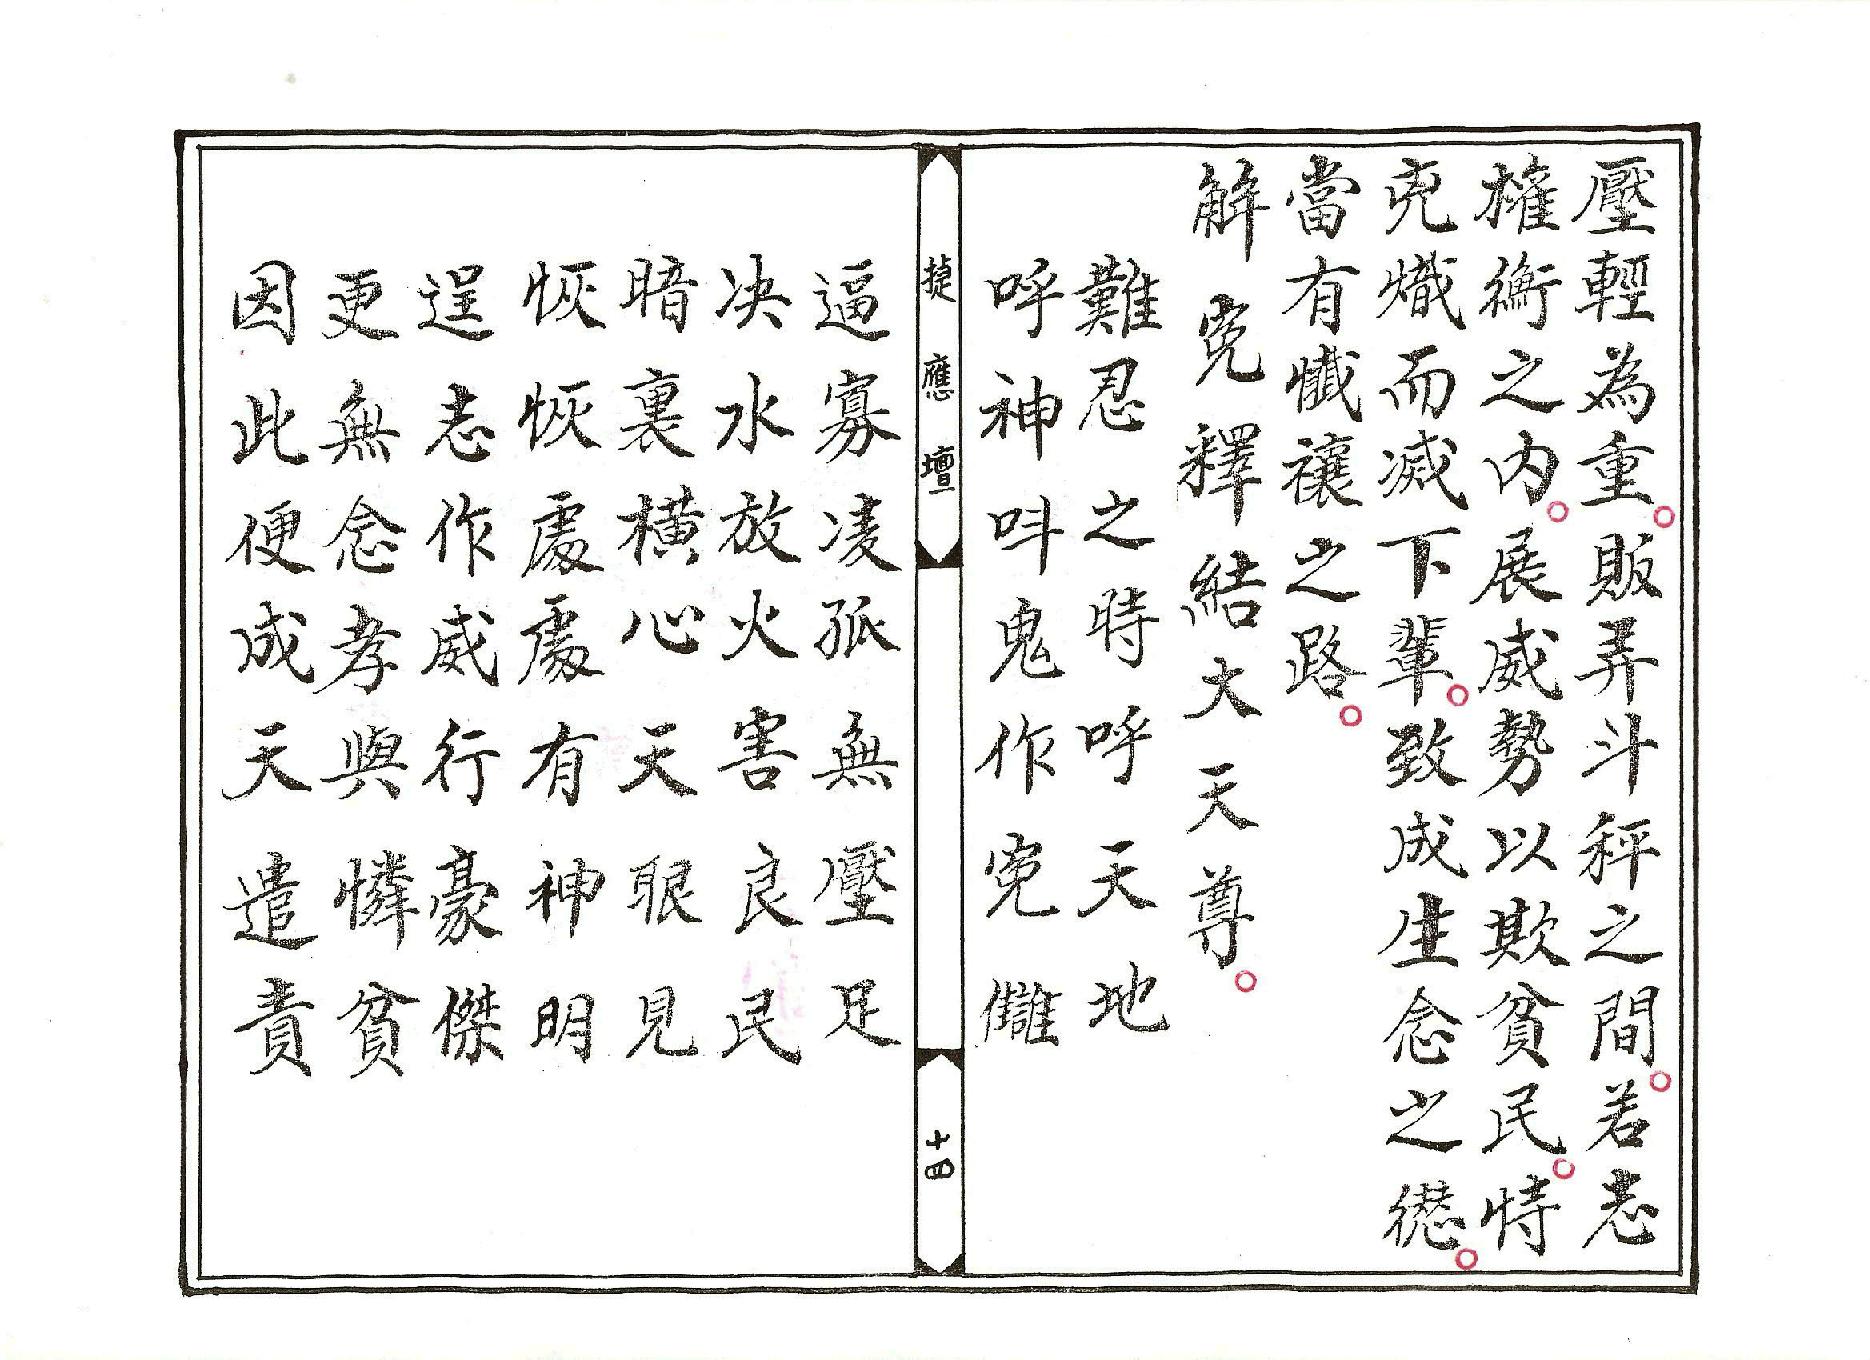 壓輕為重。販弄斗秤之間。若志
權衡之內。展威勢以欺貧民。恃
兇熾而滅下輩。致成生念之愆。
當有懺禳之路。
解冤釋結大天尊。
難忍之時呼天地
呼神呌鬼作冤讎
捷應壇
十四
逼寡凌孤無壓足
决水放火害良民
暗裏橫心天眼見
恢恢處處有神明
逞志作威行豪傑
更無念孝與憐貧
因此便成天遣責